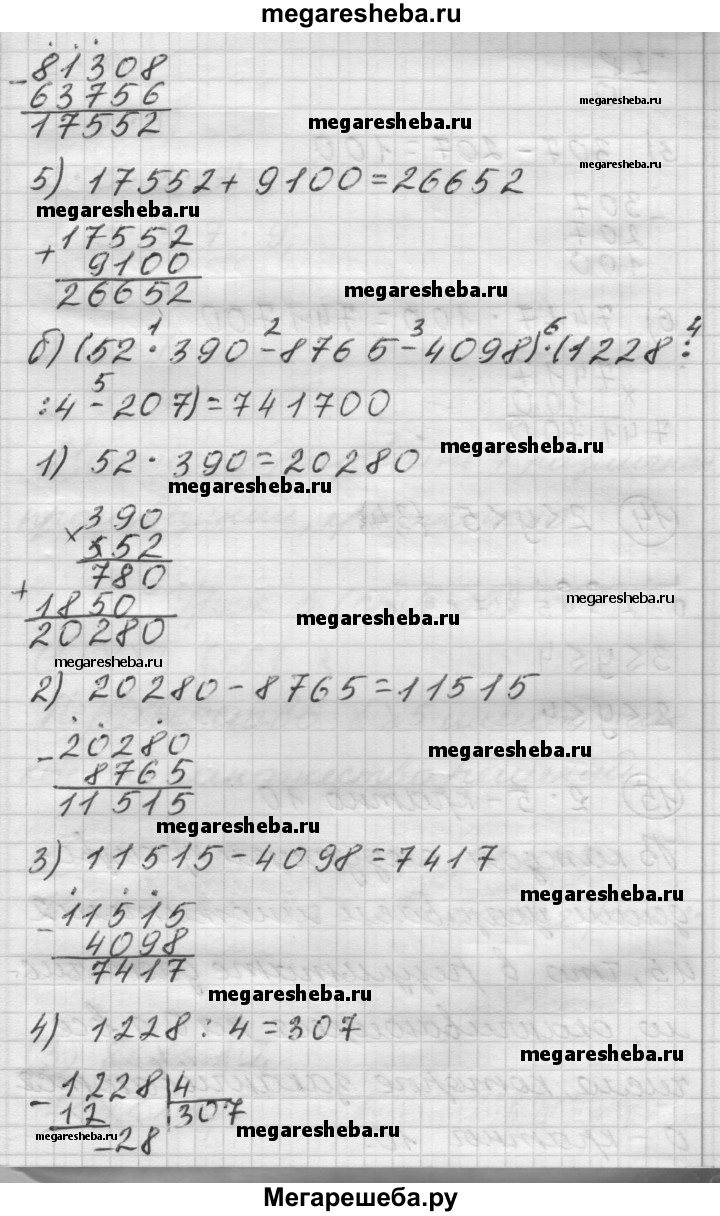 megaresheba.ru
81308
- 63756
17552
megaresheba.ru
megaresheba.ru
5) 17552 + 9100 = 26652
megaresheba.ru
megaresheba.ru
17552
+ 9100
26652
megaresheba.ru
1 2 3 6 4
б) (52 · 390 - 8765 - 4098) · (1228 :
5
: 4 - 207) = 741700
megaresheba.ru
1) 52 · 390 = 20280
megaresheba.ru
390
× 52
780
+ 1850
20280
megaresheba.ru
megaresheba.ru
megaresheba.ru
2) 20280 - 8765 = 11515
- 20280
8765
11515
megaresheba.ru
megaresheba.ru
3) 11515 - 4098 = 7417
megaresheba.ru
- 11515
4098
7417
megaresheba.ru
4) 1228 : 4 = 307
megaresheba.ru
- 1228 | 4
12 307
megaresheba.ru
- 28
megaresheba.ru
Мегарешеба.ру